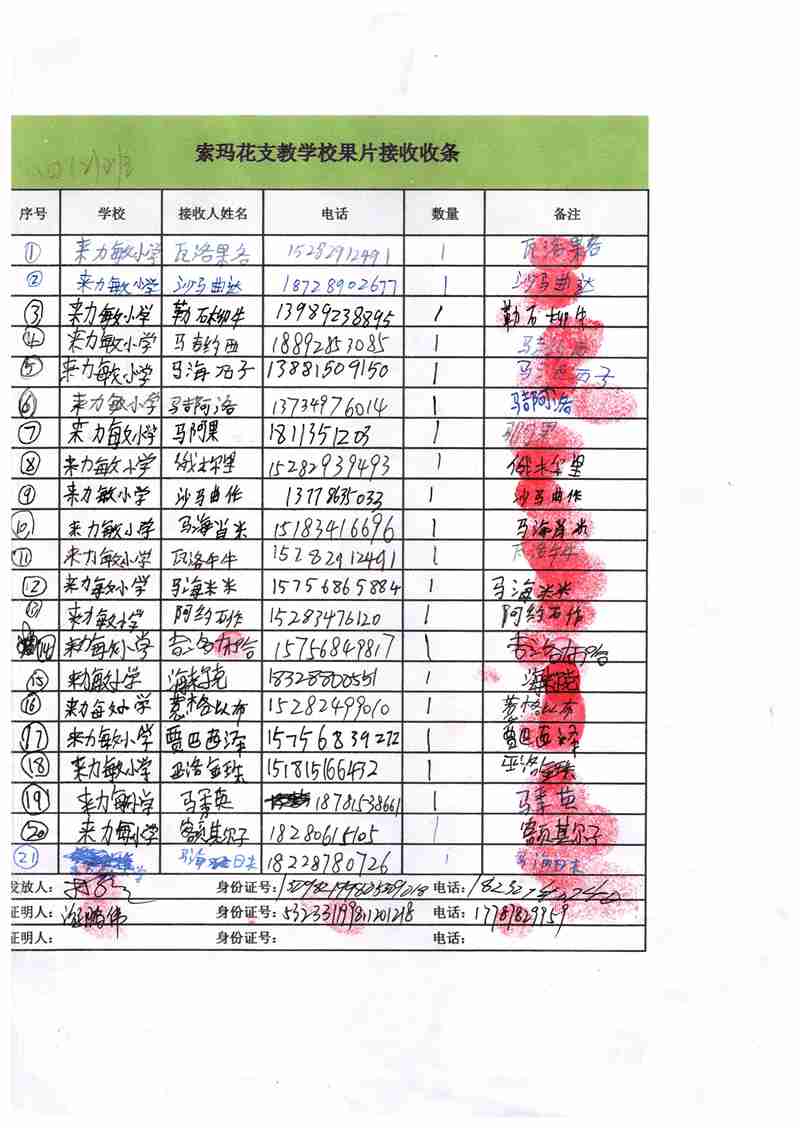 索玛花支教学校果片接收收条
序号 学校 接收人姓名 电话 数量 备注
① 来力敏小学 瓦洛果各 15282912491 1 瓦洛果各
② 来力敏小学 沙马曲达 18728902677 1 沙马曲达
③ 来力敏小学 勒石柳牛 13989238895 1 勒石柳牛
④ 来力敏小学 18892853085 1
⑤ 来力敏小学 马海乃子 13881509150 1
⑥ 来力敏小学 马吉阿洛 13734976014 1 马吉阿洛
⑦ 来力敏小学 马阿果 1811351203 1 马阿果
⑧ 来力敏小学 15282939493 1
⑨ 来力敏小学 沙马曲作 13778635033 1 沙马曲作
⑩ 来力敏小学 马海肖米 15183416696 1 马海肖米
⑪ 来力敏小学 瓦洛牛牛 15282912491 1 瓦洛牛牛
⑫ 来力敏小学 马海米米 15756865884 1 马海米米
⑬ 来力敏小学 阿约石作 15283476120 1 阿约石作
⑭ 来力敏小学 15756849817 1
⑮ 来力敏小学 18328800551 1
⑯ 来力敏小学 15282499010 1
⑰ 来力敏小学 贾巴西泽 15756839272 1 贾巴西泽
⑱ 来力敏小学 亚洛金珠 151815166432 1 亚洛金珠
⑲ 来力敏小学 马季英 18781538661 1 马季英
⑳ 来力敏小学 客贡其尔子 18280615105 1 客贡其尔子
㉑ 马海日米 18228780726 1 马海日米
发放人： 身份证号： 电话：
证明人： 汪腾伟 身份证号：532331199811201218 电话：17781829959
证明人： 身份证号： 电话：